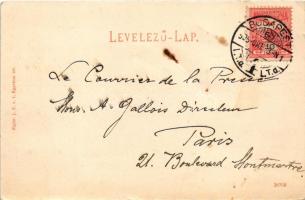 LEVELEZŐ-LAP.
BUDAPEST
Le Courrier de la Presse
Mons. A. Gallois Directeur
Paris
21. Boulevard Montmartre